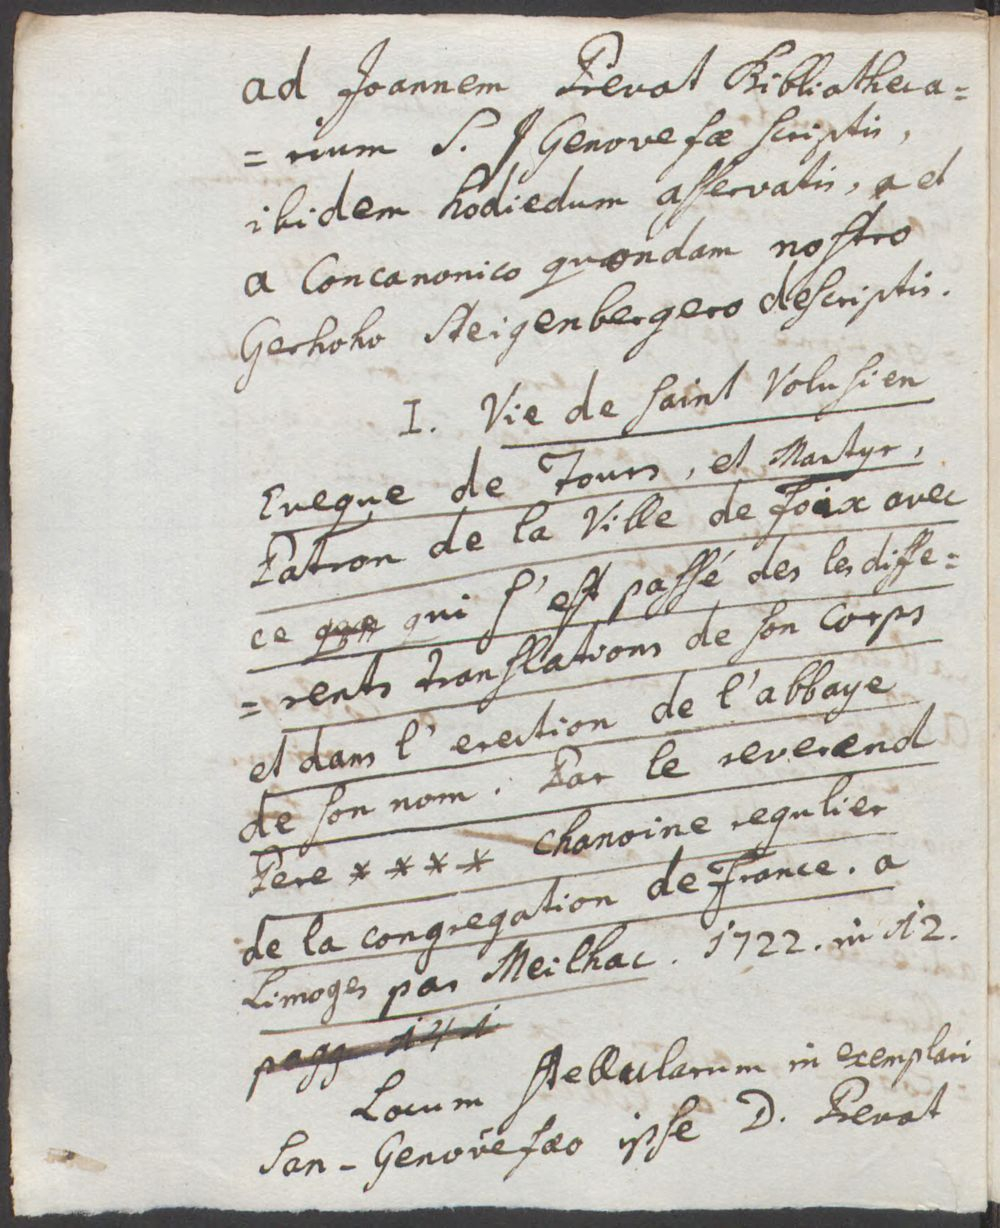 ad Joannem Prevot Bibliotheca=
=rium S. Genovefæ scriptis,
ibidem hodiedum asservatis, a et
a Concanonico quondam nostro
Gerhoho Steigenbergero descriptis.
I. Vie de saint Volusien
Eveque de Tours, et Martyr,
Patron de la Ville de Foix avec
ce que qui s'est passé des les diffe=
=rents translations de son Corps
et dans l'erection de l'abbaye
de son nom. Par le reverend
Pere **** Chanoine regulier
de la congregation de France. a
Limoges par Meilhac. 1722. in 12.
pagg. 141
Locum stellularum in exemplari
San-Genovefæo ipse D. Prevot